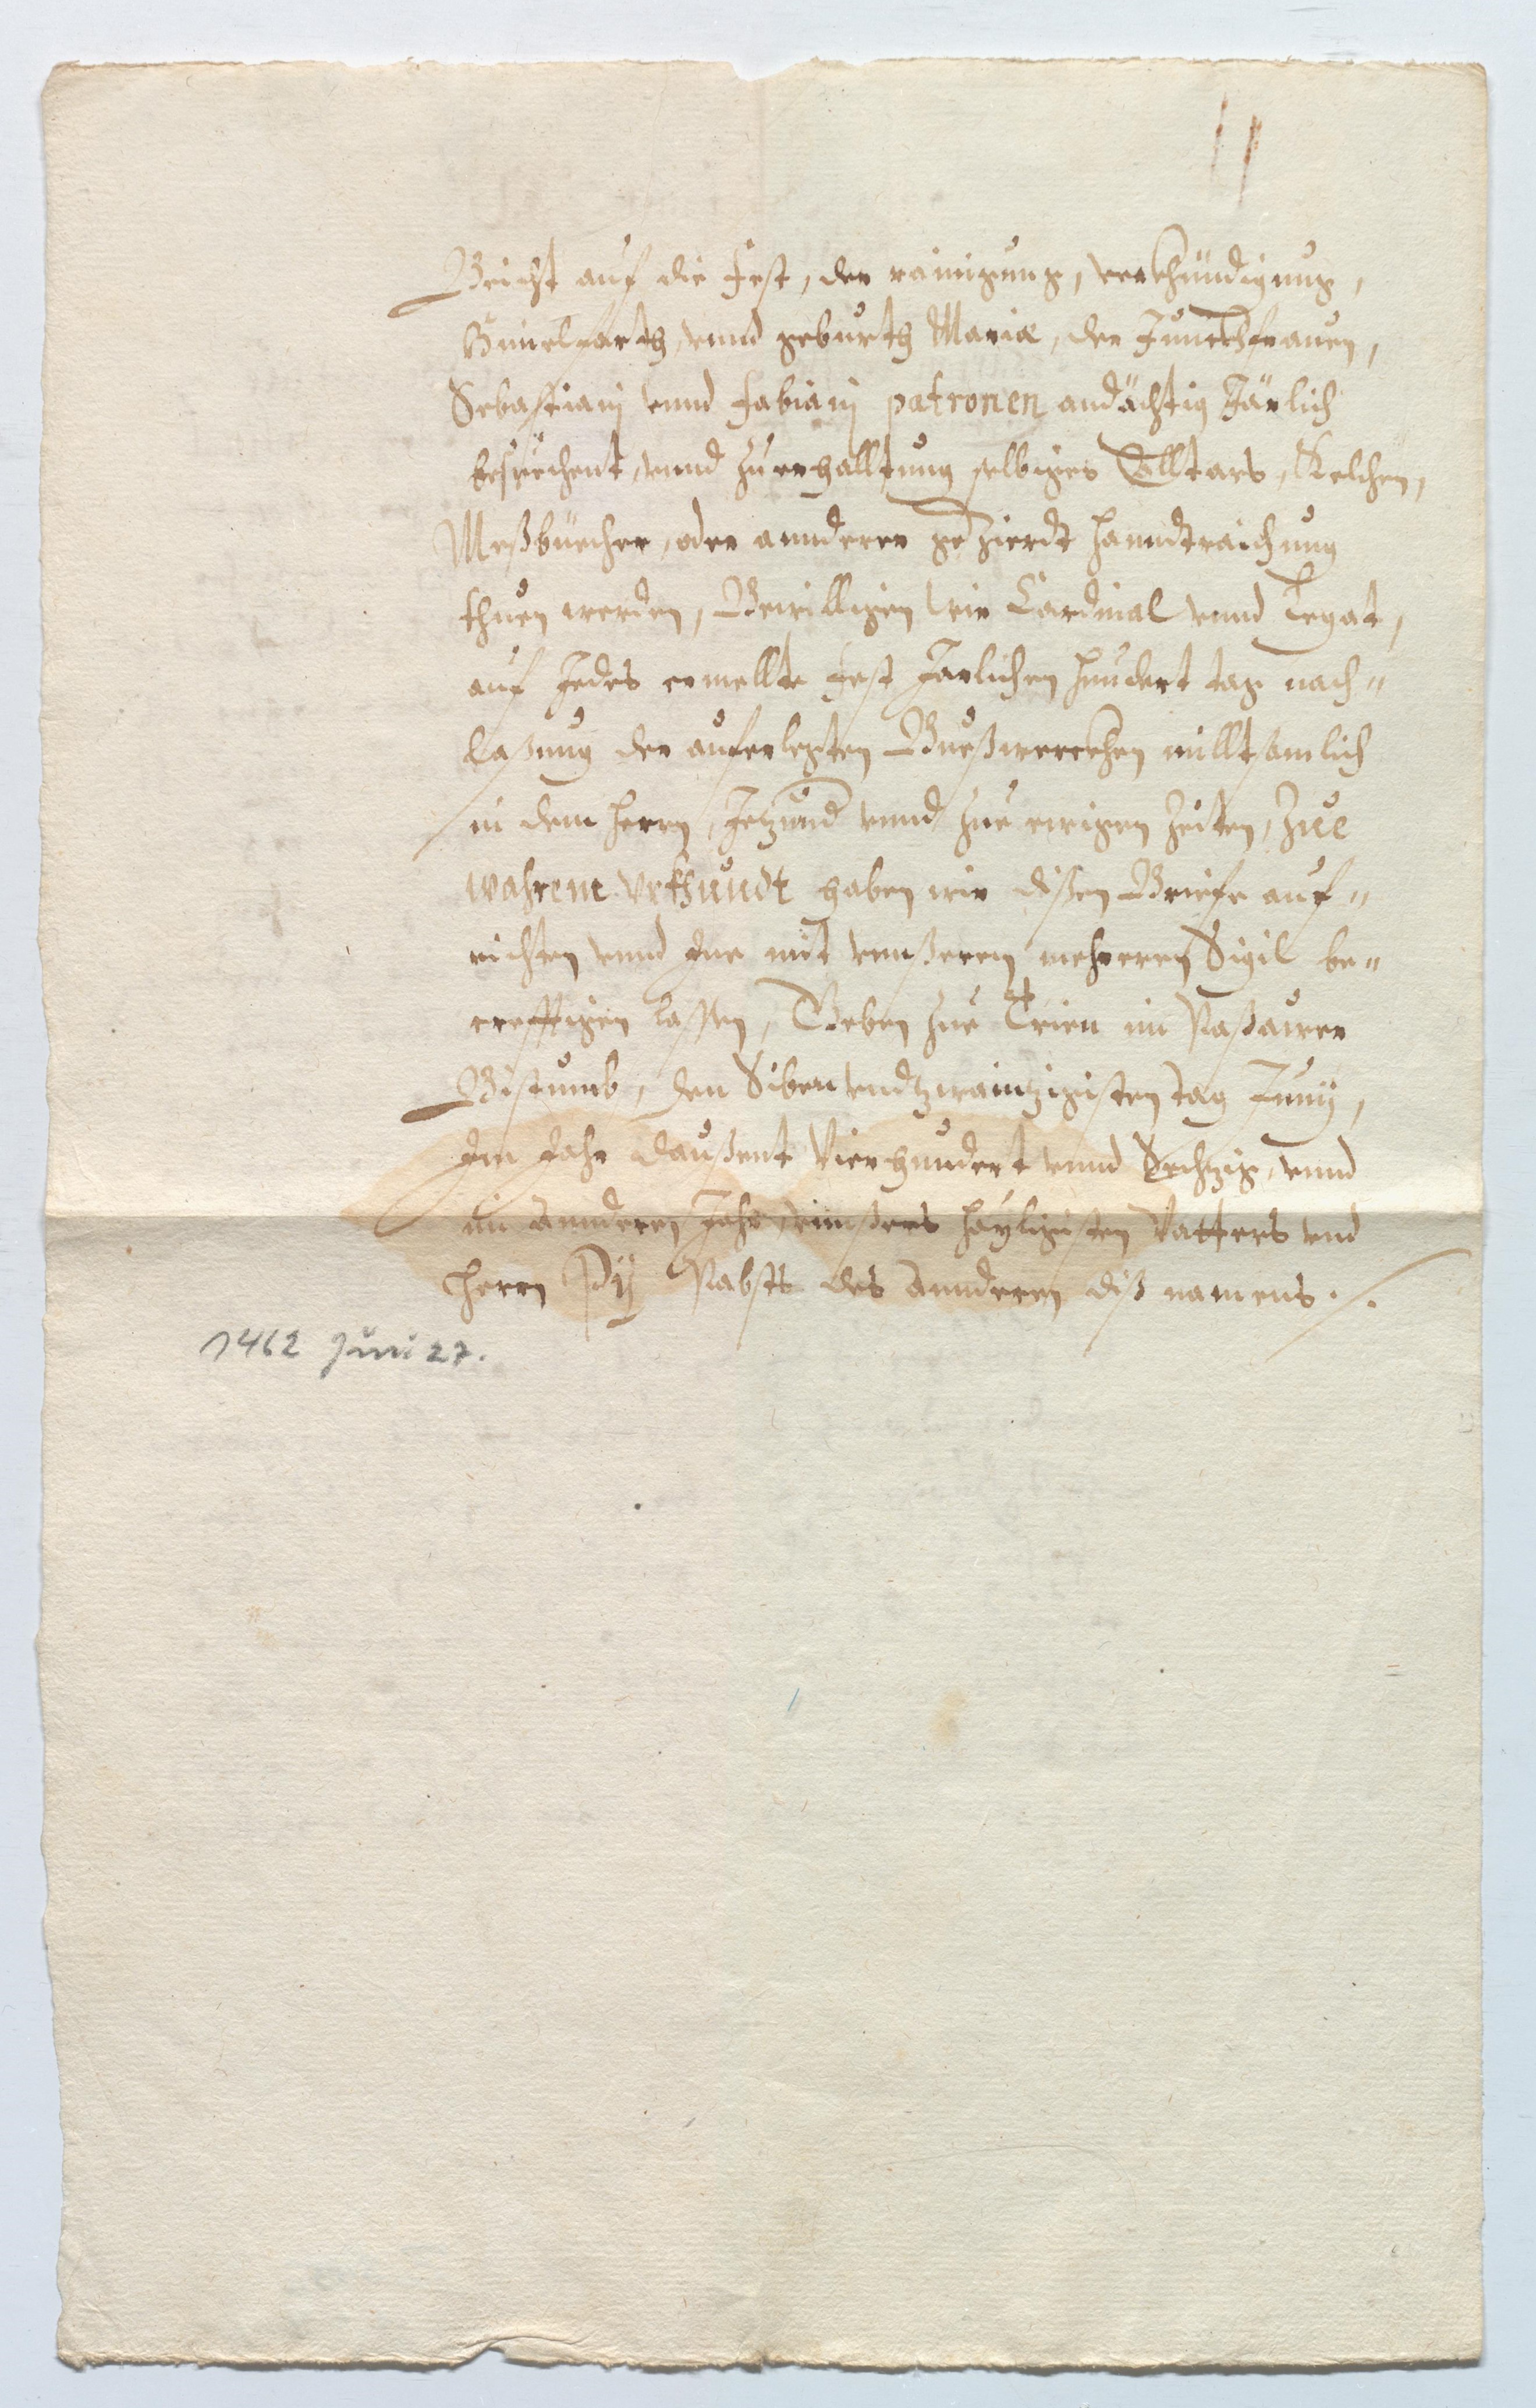 Beicht auf die Fest, der rainigung, verkhündigung,
Himelfarth, vnnd geburth Mariæ, der Junckhfrauen,
Sebastianj vnnd Fabianj patronen andächtig Järlich
besuechent, vnnd zu erhalltung selbiges Alltars, Kelchen,
Meßbüecher, oder annderer gezierdt hanndtraichung
thuen werden, Bewilligen wir Cardinal vnnd Legat,
auf Jedes ermellte Fest Jarlichen hundert tag nach"
laßung der auferlegten Bueßwerckhen milltsamlich
in dem herrn, Jetzund vnnd zue ewigen Zeiten, Zue
wahrem Vrkhundt haben wir dißen Briefe auf"
richten vnnd Jne mit vnnßerem mehrern Sigil be"
creffigen lassen, Geben zue Trien im Paßauer
Bistumb, den Sibenvndtzwaintzigisten tag Junij,
Jm Jahr Daußent Vierhundert vnnd Sechtzig, vnnd
im annderen Jahr vnnßers hayligisten Vatters vnd
herrn Pij Pabsts des annderen diß namens ./.
1462 Juni 27.